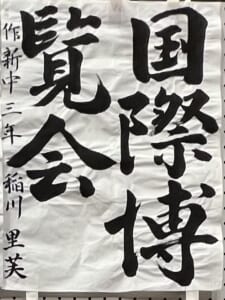 国際博
覧会
作新中三年 稲川里芙